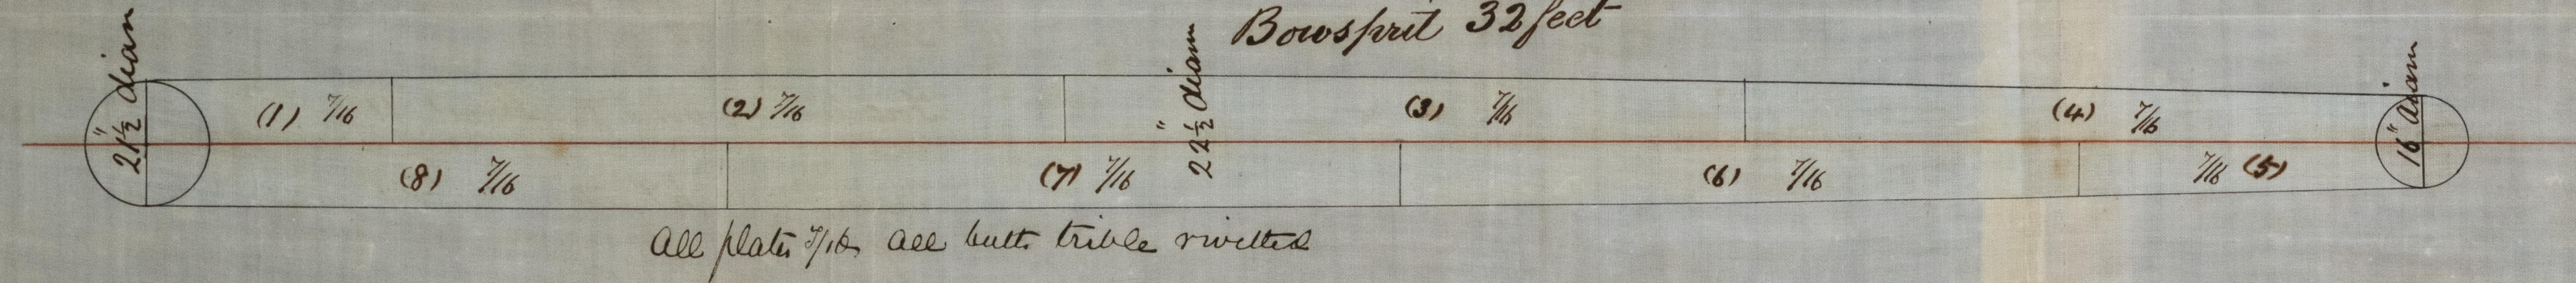 Bowsprit 32 feet
21½" diam
(1) 7/16
(2) 7/16
22½" diam
(3) 7/16
(4) 7/16
16" diam
(8) 7/16
(7) 7/16
(6) 7/16
7/16 (5)
All plates 7/16 All butts trible rivetted